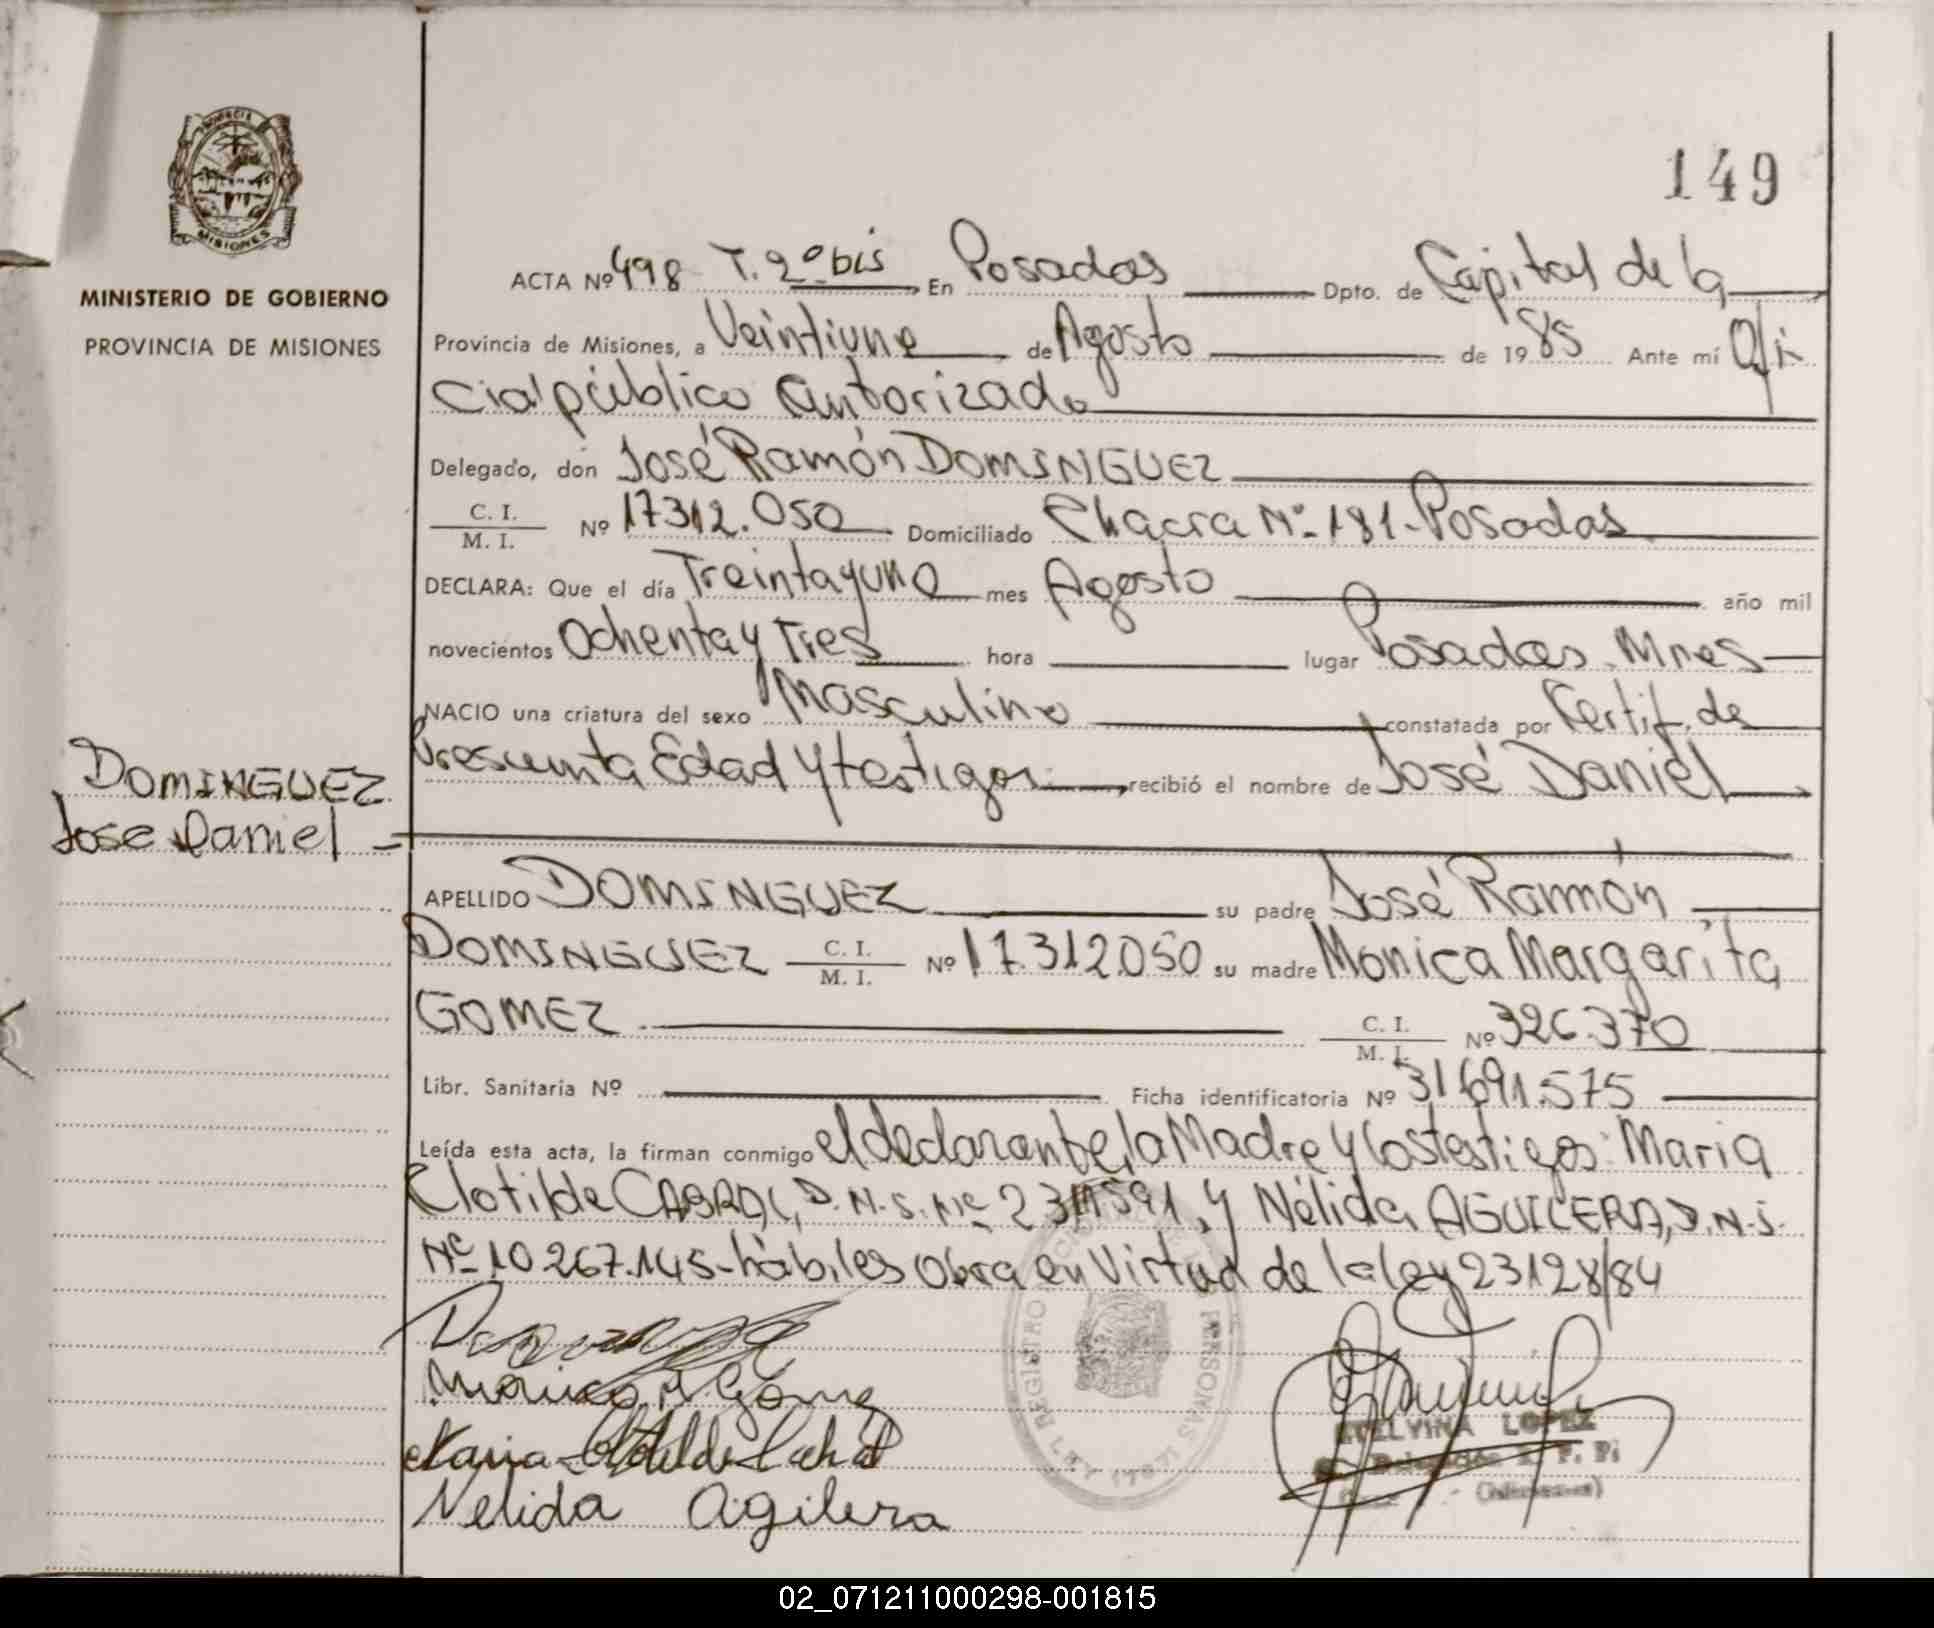 PROVINCIA
MISIONES
MINISTERIO DE GOBIERNO
PROVINCIA DE MISIONES
149
ACTA Nº 498 T. 2º bis En Posadas Dpto. de Capital de la
Provincia de Misiones, a Veintiuno de Agosto de 1985 Ante mí Ofi
cial público autorizado
Delegado, don José Ramón DOMINGUEZ
C. I.
M. I. Nº 17312.050 Domiciliado Chacra Nº 181-Posadas
DECLARA: Que el día Treinta y uno mes Agosto año mil
novecientos Ochenta y Tres hora lugar Posadas Mnes
NACIO una criatura del sexo Masculino constatada por Certif. de
Presunta Edad y testigos recibió el nombre de José Daniel
DOMINGUEZ
Jose Daniel
APELLIDO DOMINGUEZ su padre José Ramón
DOMINGUEZ C. I. M. I. Nº 17.312.050 su madre Monica Margarita
GOMEZ C. I. M. I. Nº 326.370
Libr. Sanitaria Nº Ficha identificatoria Nº 31691.575
Leída esta acta, la firman conmigo el declarante, la Madre y los testigos: Maria
Clotilde CABRAL, D.N.I. Nº 2311591, y Nélida AGUILERA, D.N.I.
Nº 10267.145-hábiles Obra en Virtud de la ley 23128/84
Monica M. Gomez
Maria Clotilde Cabral
Nelida Agilera
REGISTRO PERSONAS LEY
ETELVINA LOPEZ
02_071211000298-001815